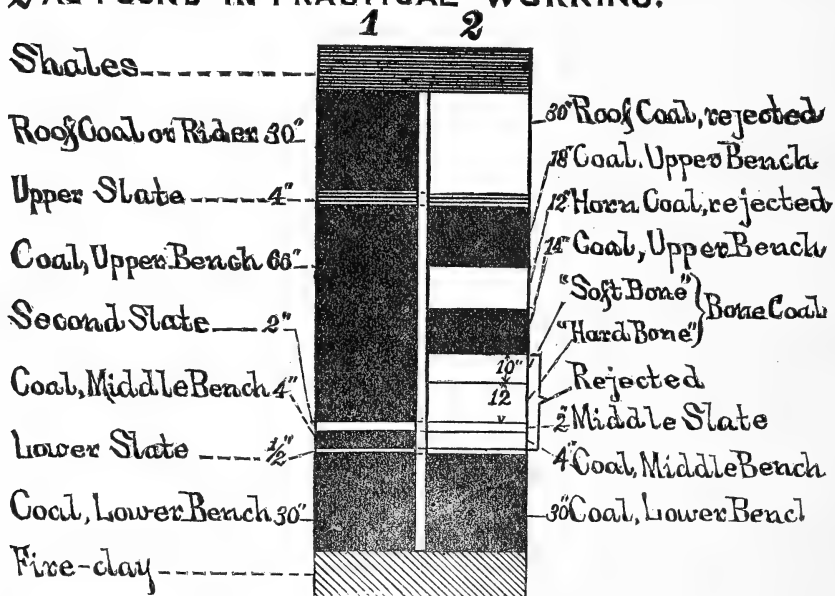 2 AS FOUND IN PRACTICAL WORKING.
1 2
Shales
Roof Coal or Rider 30"
Upper Slate 4"
Coal, Upper Bench 66"
Second Slate 2"
Coal, Middle Bench 4"
Lower Slate 1/2"
Coal, Lower Bench 30"
Fire-clay
30" Roof Coal, rejected
18" Coal. Upper Bench
12" Horn Coal, rejected
14" Coal, Upper Bench
"Soft Bone"
"Hard Bone"
Bone Coal
10"
12
Rejected
2" Middle Slate
4" Coal, Middle Bench
30" Coal, Lower Bencl